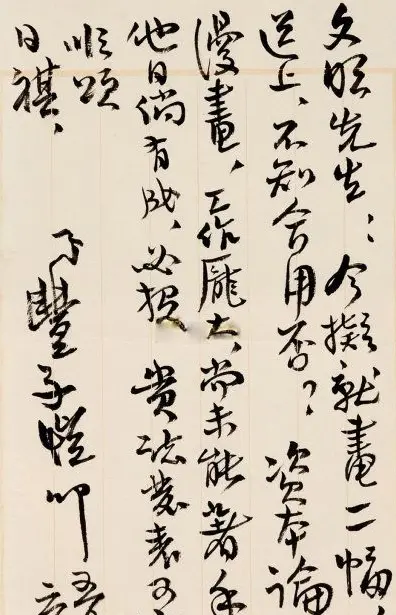 文彬先生:今擬就畫二幅
送上、不知合用否?資本論
漫畫、工作龐大、尚未能著手
他日倘有成、必投 貴誌發表
順頌
日祺、
弟豐子愷叩